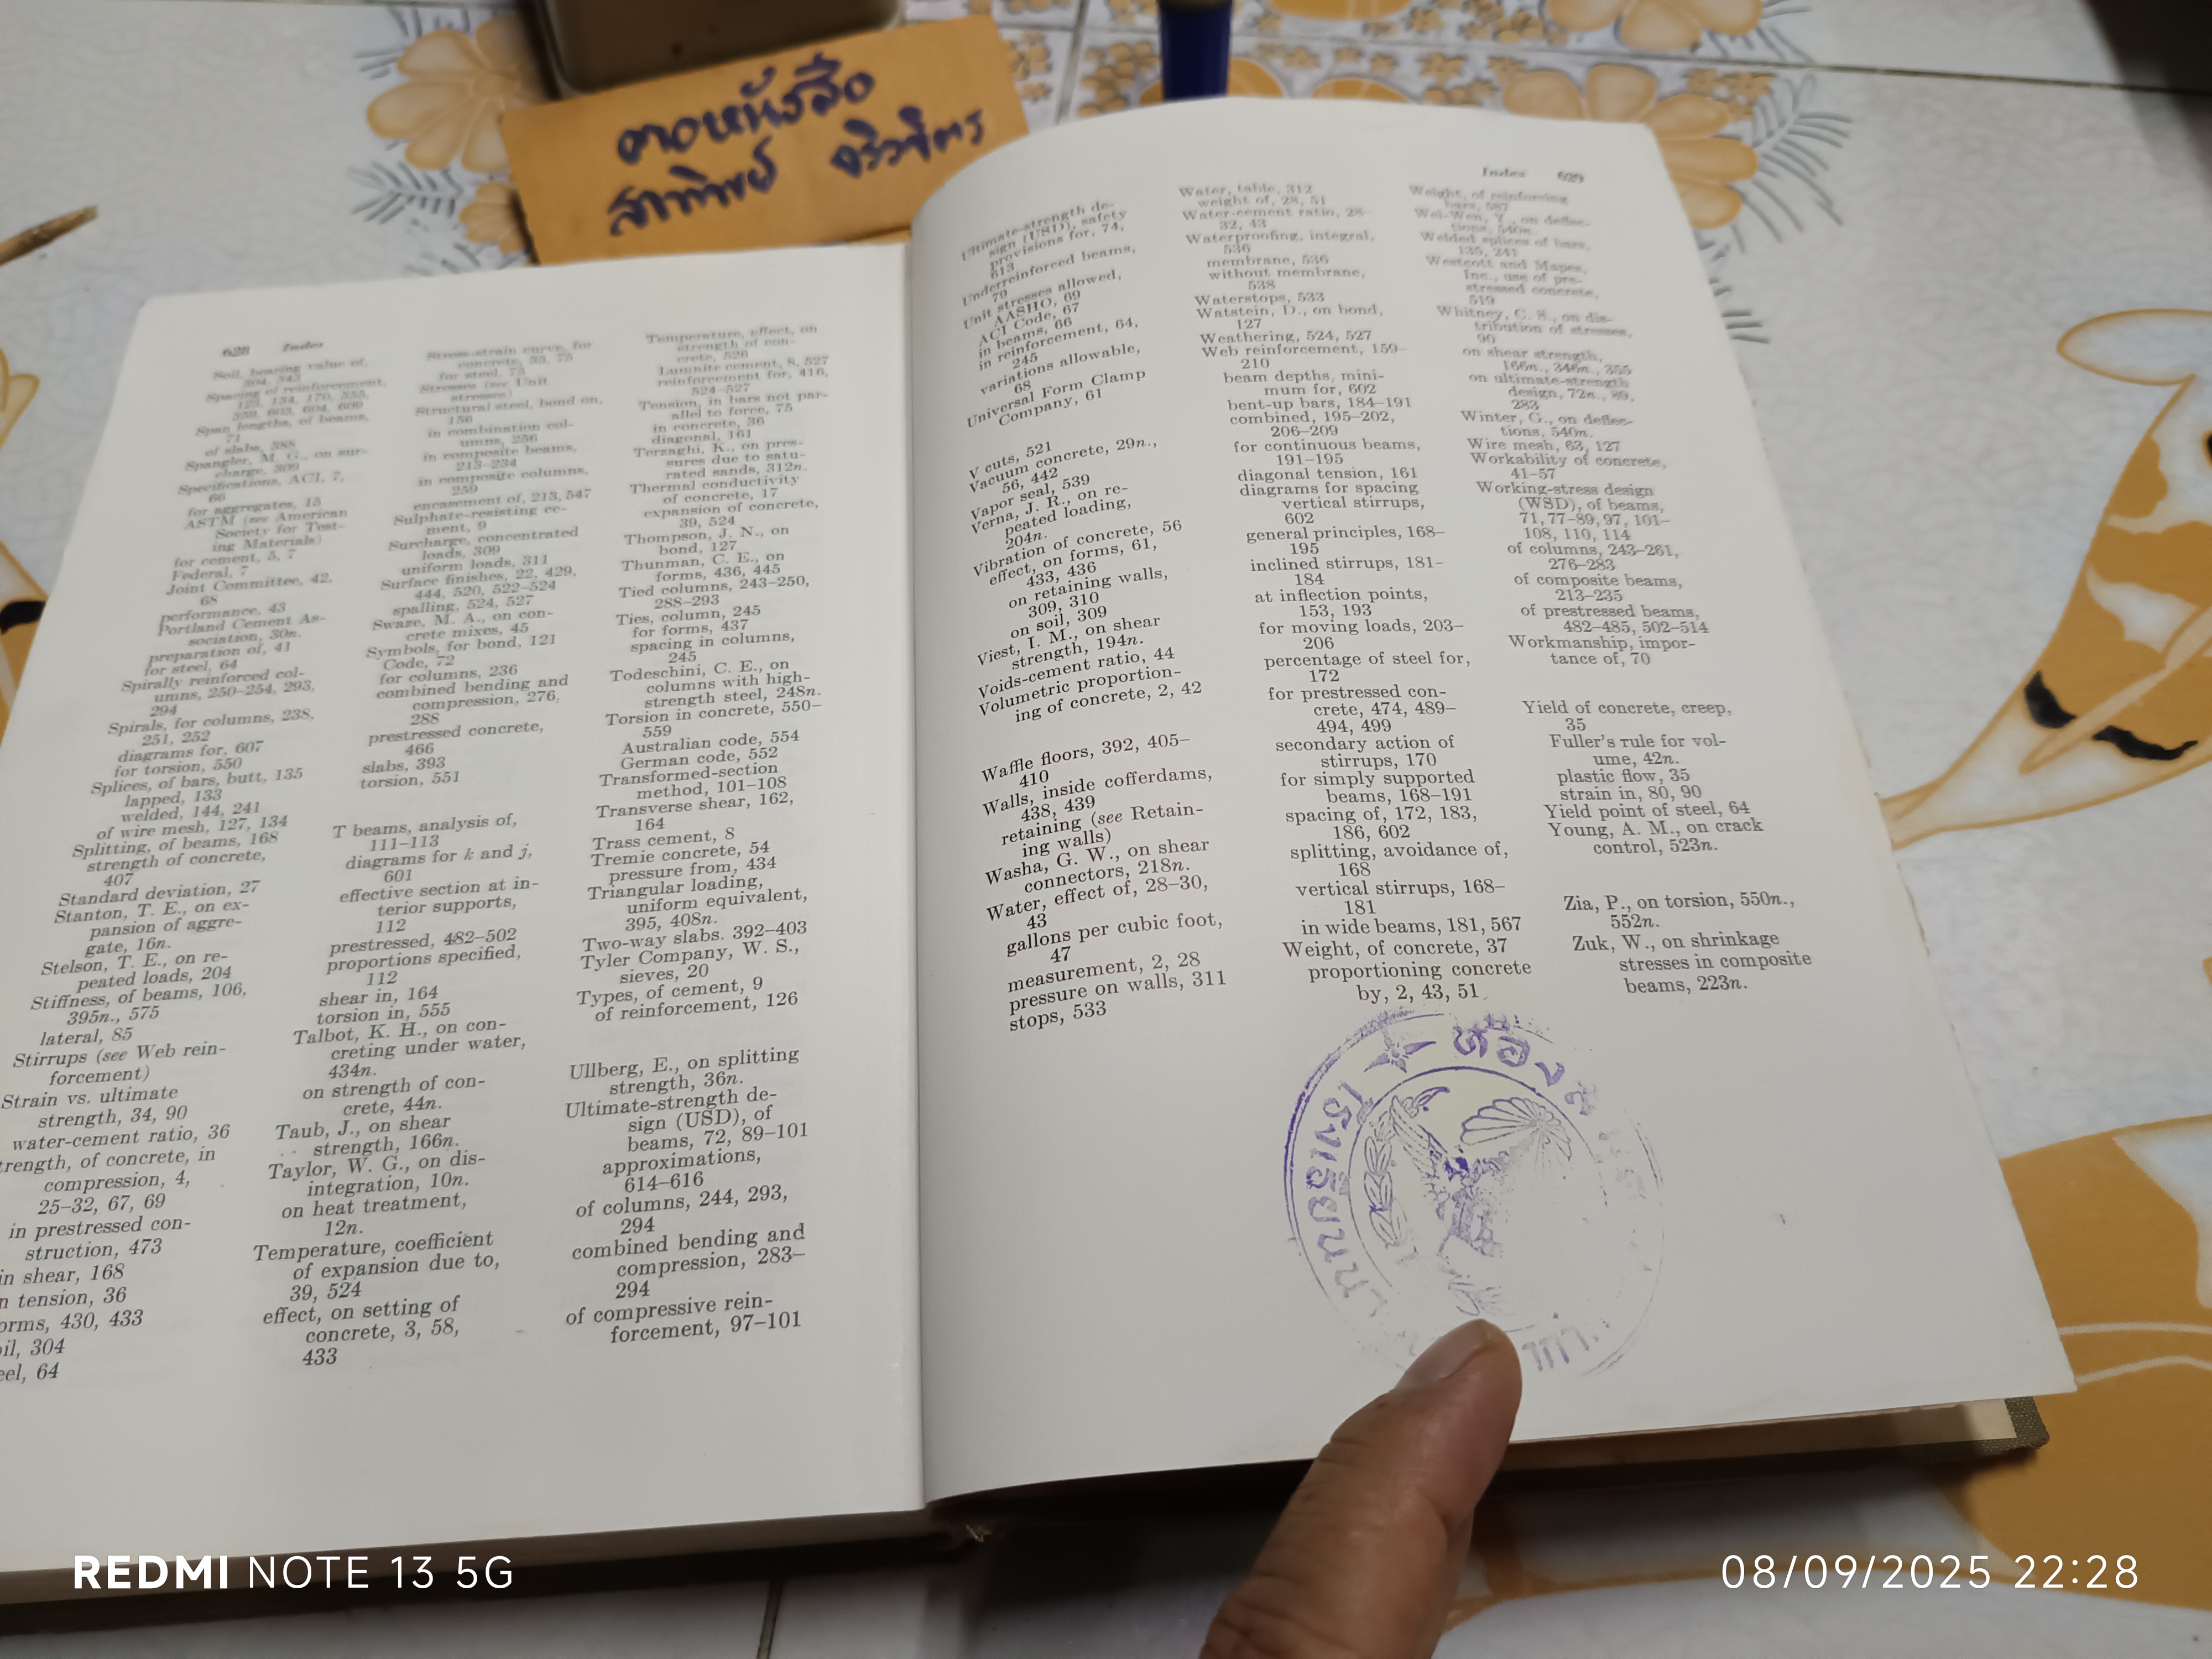 ตอหนังสือ
สาทิพย์ จิรวิตร
628 Index
Soil, bearing value of,
304, 343
Spacing of reinforcement,
Span lengths, of beams,
71
of slabs, 388
Spangler, M. G., on sur-
charge, 309
Specifications, ACI, 7,
66
for aggregates, 15
ASTM (see American
Society for Test-
ing Materials)
for cement, 5, 7
Federal, 7
Joint Committee, 42,
68
performance, 43
Portland Cement As-
sociation, 30n.
preparation of, 41
for steel, 64
Spirally reinforced col-
umns, 250–254, 293,
294
Spirals, for columns, 238,
251, 252
diagrams for, 607
for torsion, 550
Splices, of bars, butt, 135
lapped, 133
welded, 144, 241
of wire mesh, 127, 134
Splitting, of beams, 168
strength of concrete,
407
Standard deviation, 27
Stanton, T. E., on ex-
pansion of aggre-
gate, 16n.
Stelson, T. E., on re-
peated loads, 204
Stiffness, of beams, 106,
395n., 575
lateral, 85
Stirrups (see Web rein-
forcement)
Strain vs. ultimate
strength, 34, 90
water-cement ratio, 36
trength, of concrete, in
compression, 4,
25–32, 67, 69
in prestressed con-
struction, 473
in shear, 168
n tension, 36
orms, 430, 433
oil, 304
eel, 64
Stress-strain curve, for
concrete, 35, 75
for steel, 75
Stresses (see Unit
stresses)
Structural steel, bond on,
156
in combination col-
umns, 256
in composite beams,
213–234
in composite columns,
259
encasement of, 213, 547
Sulphate-resisting ce-
ment, 9
Surcharge, concentrated
loads, 309
uniform loads, 311
Surface finishes, 22, 429,
444, 520, 522–524
spalling, 524, 527
Swaze, M. A., on con-
crete mixes, 45
Symbols, for bond, 121
Code, 72
for columns, 236
combined bending and
compression, 276,
288
prestressed concrete,
466
slabs, 393
torsion, 551
T beams, analysis of,
111–113
diagrams for k and j,
601
effective section at in-
terior supports,
112
prestressed, 482–502
proportions specified,
112
shear in, 164
torsion in, 555
Talbot, K. H., on con-
creting under water,
434n.
on strength of con-
crete, 44n.
Taub, J., on shear
strength, 166n.
Taylor, W. G., on dis-
integration, 10n.
on heat treatment,
12n.
Temperature, coefficient
of expansion due to,
39, 524
effect, on setting of
concrete, 3, 58,
433
Temperature, effect, on
strength of con-
crete, 526
Lumnite cement, 8, 527
reinforcement for, 416,
524–527
Tension, in bars not par-
allel to force, 75
in concrete, 36
diagonal, 161
Terzaghi, K., on pres-
sures due to satu-
rated sands, 312n.
Thermal conductivity
of concrete, 17
expansion of concrete,
39, 524
Thompson, J. N., on
bond, 127
Thunman, C. E., on
forms, 436, 445
Tied columns, 243–250,
288–293
Ties, column, 245
for forms, 437
spacing in columns,
245
Todeschini, C. E., on
columns with high-
strength steel, 248n.
Torsion in concrete, 550–
559
Australian code, 554
German code, 552
Transformed-section
method, 101–108
Transverse shear, 162,
164
Trass cement, 8
Tremie concrete, 54
pressure from, 434
Triangular loading,
uniform equivalent,
395, 408n.
Two-way slabs. 392–403
Tyler Company, W. S.,
sieves, 20
Types, of cement, 9
of reinforcement, 126
Ullberg, E., on splitting
strength, 36n.
Ultimate-strength de-
sign (USD), of
beams, 72, 89–101
approximations,
614–616
of columns, 244, 293,
294
combined bending and
compression, 283–
294
of compressive rein-
forcement, 97–101
Index 629
Ultimate-strength de-
sign (USD), safety
provisions for, 74,
613
Underreinforced beams,
79
Unit stresses allowed,
AASHO, 69
ACI Code, 67
in beams, 66
in reinforcement, 64,
245
variations allowable,
68
Universal Form Clamp
Company, 61
V cuts, 521
Vacuum concrete, 29n.,
56, 442
Vapor seal, 539
Verna, J. R., on re-
peated loading,
204n.
Vibration of concrete, 56
effect, on forms, 61,
433, 436
on retaining walls,
309, 310
on soil, 309
Viest, I. M., on shear
strength, 194n.
Voids-cement ratio, 44
Volumetric proportion-
ing of concrete, 2, 42
Waffle floors, 392, 405–
410
Walls, inside cofferdams,
438, 439
retaining (see Retain-
ing walls)
Washa, G. W., on shear
connectors, 218n.
Water, effect of, 28–30,
43
gallons per cubic foot,
47
measurement, 2, 28
pressure on walls, 311
stops, 533
Water, table, 312
weight of, 28, 51
Water-cement ratio, 28–
32, 43
Waterproofing, integral,
536
membrane, 536
without membrane,
538
Waterstops, 533
Watstein, D., on bond,
127
Weathering, 524, 527
Web reinforcement, 159–
210
beam depths, mini-
mum for, 602
bent-up bars, 184–191
combined, 195–202,
206–209
for continuous beams,
191–195
diagonal tension, 161
diagrams for spacing
vertical stirrups,
602
general principles, 168–
195
inclined stirrups, 181–
184
at inflection points,
153, 193
for moving loads, 203–
206
percentage of steel for,
172
for prestressed con-
crete, 474, 489–
494, 499
secondary action of
stirrups, 170
for simply supported
beams, 168–191
spacing of, 172, 183,
186, 602
splitting, avoidance of,
168
vertical stirrups, 168–
181
in wide beams, 181, 567
Weight, of concrete, 37
proportioning concrete
by, 2, 43, 51
Weight, of reinforcing
bars, 587
Wei-Wen, Y., on deflec-
tions, 540n.
Welded splices of bars,
135, 241
Westcott and Mapes,
Inc., use of pre-
stressed concrete,
519
Whitney, C. S., on dis-
tribution of stresses,
90
on shear strength,
166n., 246n., 355
on ultimate-strength
design, 72n., 89,
283
Winter, G., on deflec-
tions, 540n.
Wire mesh, 63, 127
Workability of concrete,
41–57
Working-stress design
(WSD), of beams,
71, 77–89, 97, 101–
108, 110, 114
of columns, 243–261,
276–283
of composite beams,
213–235
of prestressed beams,
482–485, 502–514
Workmanship, impor-
tance of, 70
Yield of concrete, creep,
35
Fuller's rule for vol-
ume, 42n.
plastic flow, 35
strain in, 80, 90
Yield point of steel, 64
Young, A. M., on crack
control, 523n.
Zia, P., on torsion, 550n.,
552n.
Zuk, W., on shrinkage
stresses in composite
beams, 223n.
REDMI NOTE 13 5G
08/09/2025 22:28